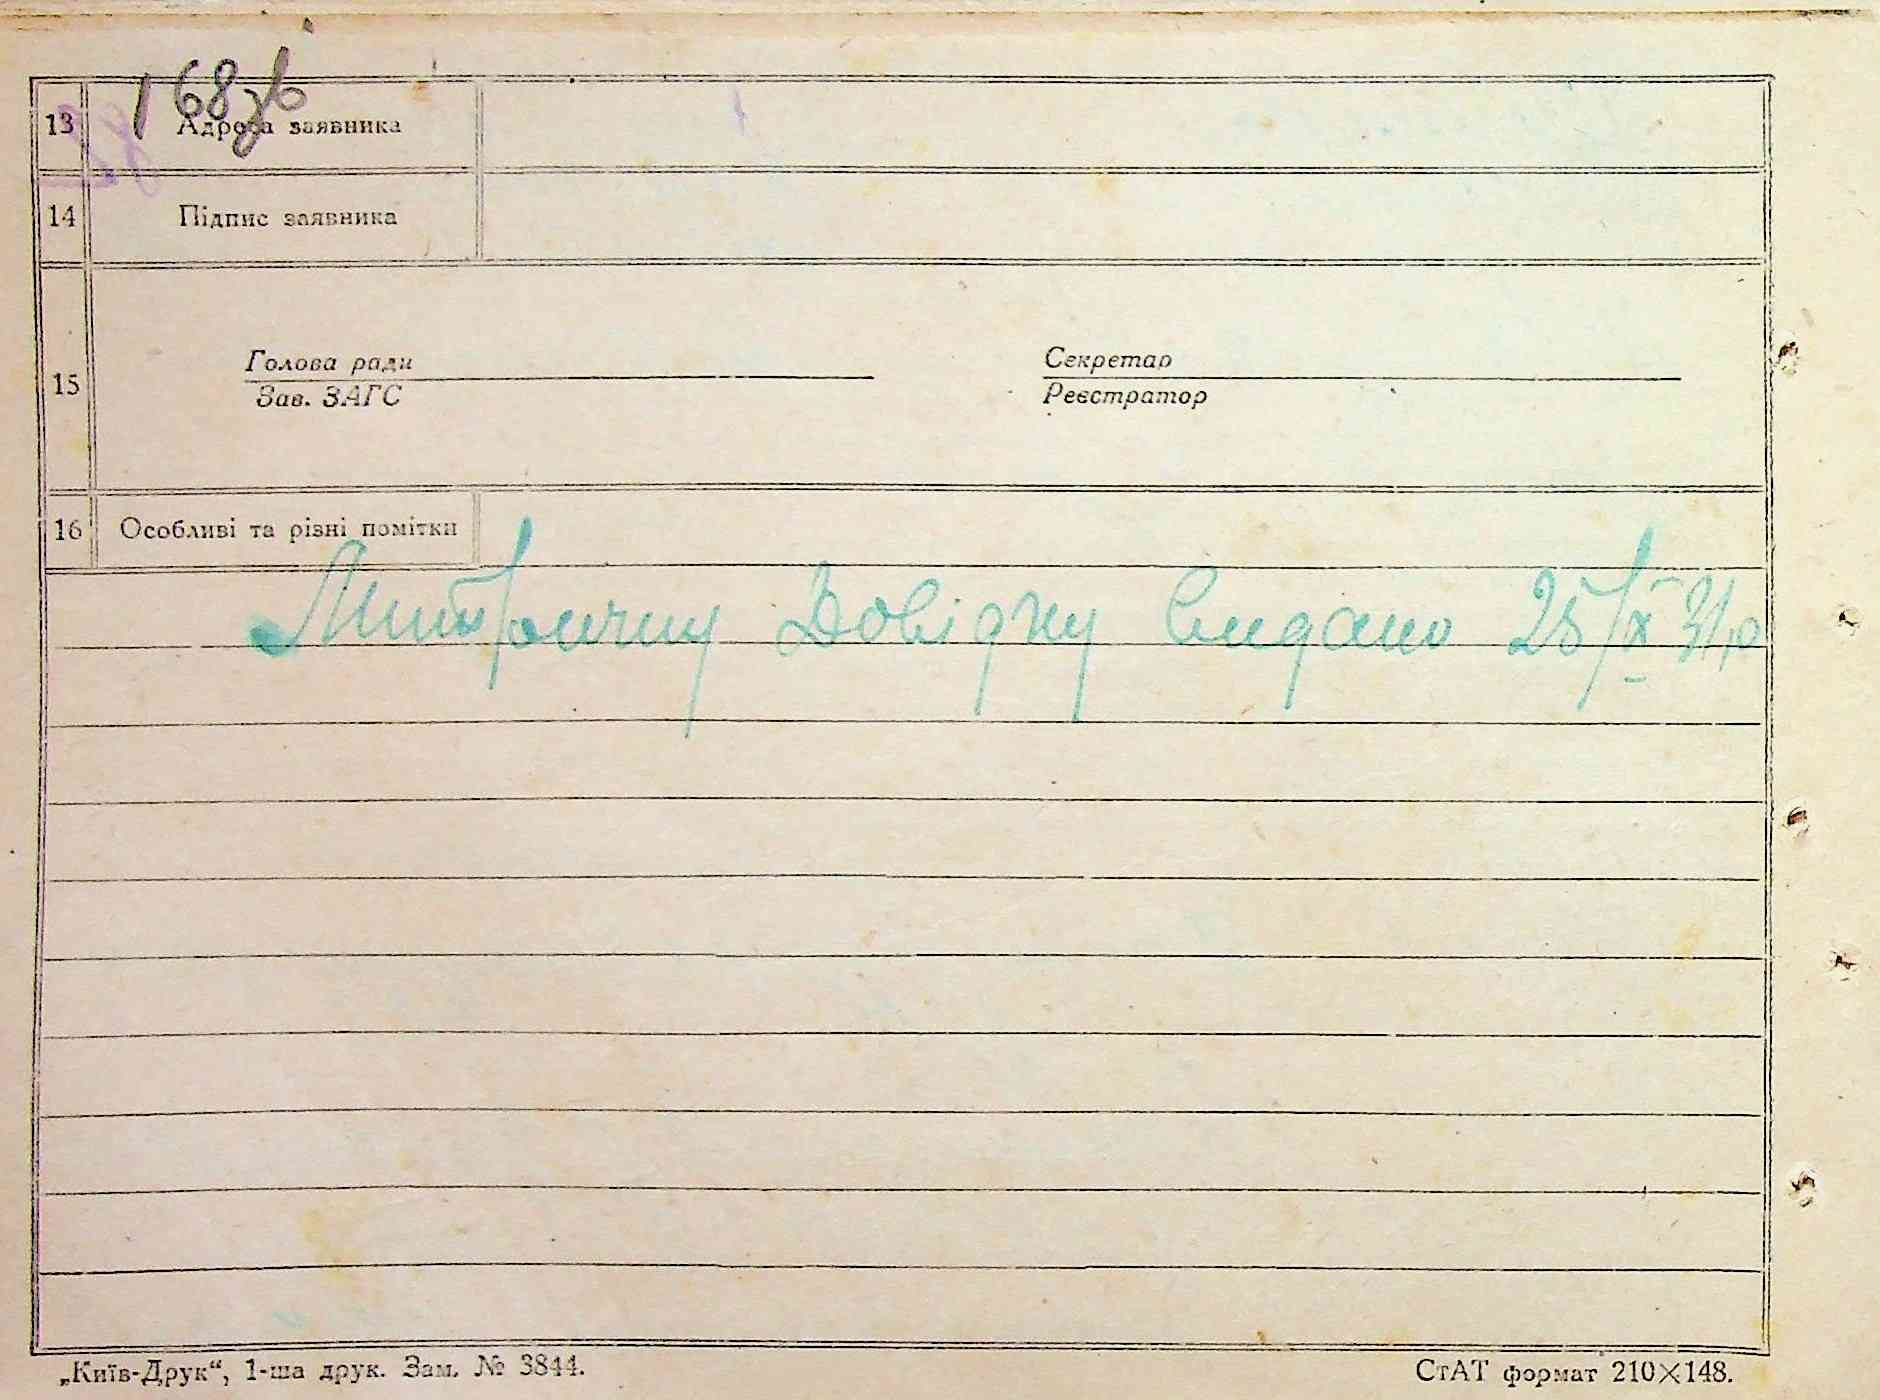 168зв
13 Адреса заявника
14 Підпис заявника
Голова ради Секретар
15
Зав. ЗАГС Реєстратор
16 Особливі та різні помітки
Довідку видано 25/IX 31 р
„Київ-Друк“, 1-ша друк. Зам. № 3844. СтАТ формат 210×148.